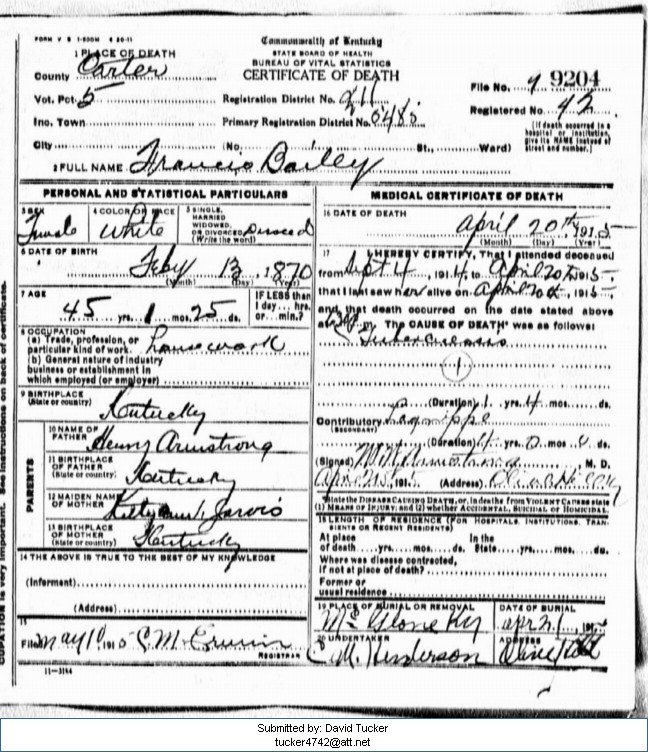 FORM V S 1-230M 6 20-11
Commonwealth of Kentucky
STATE BOARD OF HEALTH
BUREAU OF VITAL STATISTICS
CERTIFICATE OF DEATH
1 PLACE OF DEATH
County Carter
Vot. Pct. 5
Ino. Town
City
Registration District No. 211
Primary Registration District No. 5485
(No. St., Ward)
File No. 9204
Registered No. 42
[If death occurred in a
hospital or institution,
give its NAME instead of
street and number.]
2 FULL NAME Francis Bailey
PERSONAL AND STATISTICAL PARTICULARS
3 SEX
Female
4 COLOR OR RACE
White
5 SINGLE,
MARRIED
WIDOWED,
OR DIVORCED
(Write the word)
6 DATE OF BIRTH
Feby 13 1870
(Month) (Day) (Year)
7 AGE
45 yrs. 1 mos. 25 ds.
IF LESS than
1 day... hrs.
or... min.?
8 OCCUPATION
(a) Trade, profession, or
particular kind of work. housework
(b) General nature of industry
business or establishment in
which employed (or employer)
9 BIRTHPLACE
(State or country)
Kentucky
PARENTS
10 NAME OF
FATHER
Henry Armstrong
11 BIRTHPLACE
OF FATHER
(State or country)
Kentucky
12 MAIDEN NAME
OF MOTHER
Jarvis
13 BIRTHPLACE
OF MOTHER
Kentucky
14 THE ABOVE IS TRUE TO THE BEST OF MY KNOWLEDGE
(Informant)
(Address)
15
Filed May 10 1915 C. M. Erwin
REGISTRAR
11-3184
MEDICAL CERTIFICATE OF DEATH
16 DATE OF DEATH
April 20th, 1915
(Month) (Day) (Year)
17 I HEREBY CERTIFY, That I attended deceased
from Sept 4, 1914, to April 20th, 1915,
that I last saw her alive on April 20th, 1915,
and that death occurred on the date stated above
at m. The CAUSE OF DEATH was as follows:
Tuberculosis
(Duration) 1 yrs. 4 mos. ds.
Contributory Lagrippe
(SECONDARY)
(Duration) yrs. mos. ds.
(Signed) Armstrong, M. D.
191 (Address) Olive Hill Ky
State the DISEASE CAUSING DEATH, or, in deaths from VIOLENT CAUSES state
(1) MEANS OF INJURY; and (2) whether ACCIDENTAL, SUICIDAL or HOMICIDAL.
18 LENGTH OF RESIDENCE (FOR HOSPITALS, INSTITUTIONS, TRANSIENTS OR RECENT RESIDENTS)
At place In the
of death yrs. mos. ds. State yrs. mos. ds.
Where was disease contracted,
if not at place of death?
Former or
usual residence
19 PLACE OF BURIAL OR REMOVAL
McGlone Ky
DATE OF BURIAL
Apr 21 191
20 UNDERTAKER
C M. Henderson
ADDRESS
Olive Hill
See instructions on back of certificate.
CUPATION is very important.
Submitted by: David Tucker
tucker4742@att.net